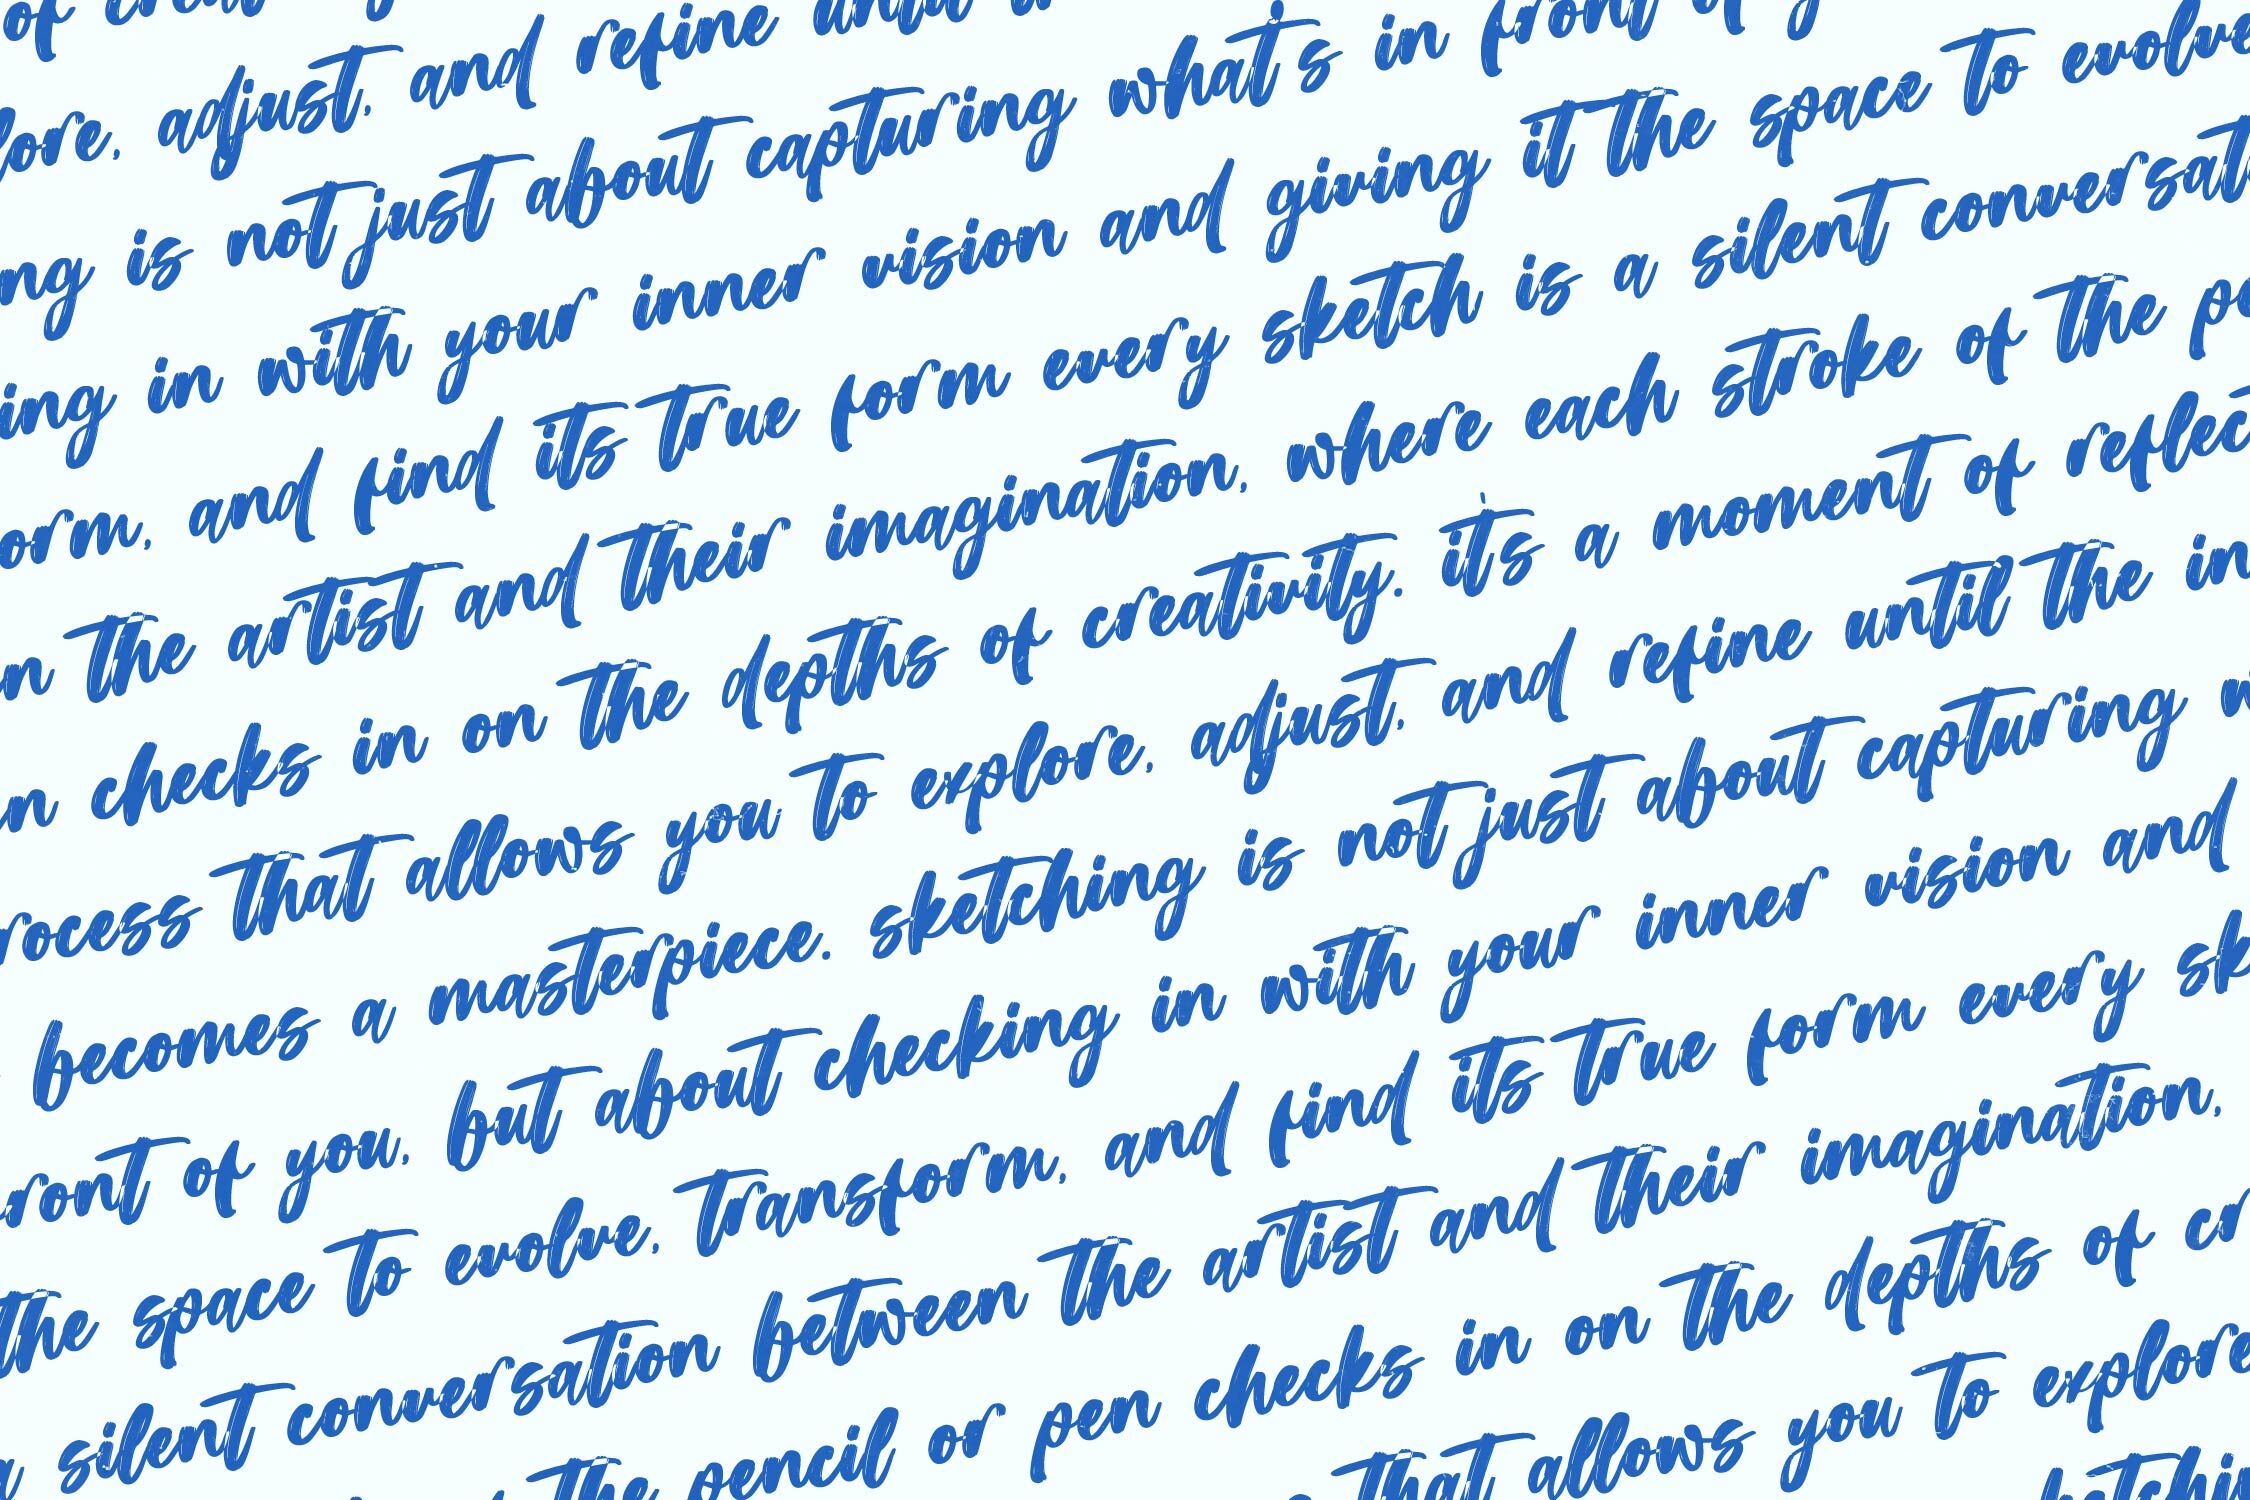 of creat
lore, adjust, and refine until
ng is not just about capturing what's in front of y
ing in with your inner vision and giving it the space to evolve
orm, and find its true form every sketch is a silent conversati
n the artist and their imagination, where each stroke of the pe
n checks in on the depths of creativity. it's a moment of reflec
rocess that allows you to explore, adjust, and refine until the in
becomes a masterpiece. sketching is not just about capturing w
ront of you, but about checking in with your inner vision and
the space to evolve, transform, and find its true form every sk
a silent conversation between the artist and their imagination,
the pencil or pen checks in on the depths of cr
that allows you to explore